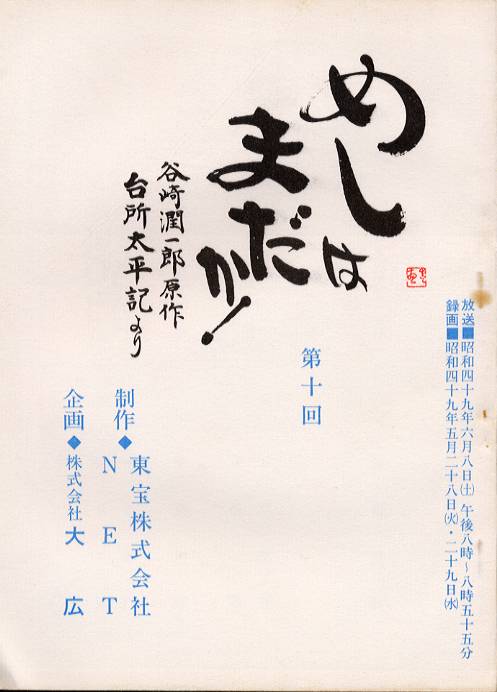 放送■昭和四十九年六月八日(土) 午後八時~八時五十五分
録画■昭和四十九年五月二十八日(火)・二十九日(水)
めしは
まだか!
谷崎潤一郎原作
台所太平記より
第十回
制作◆東宝株式会社
NET
企画◆株式会社大広